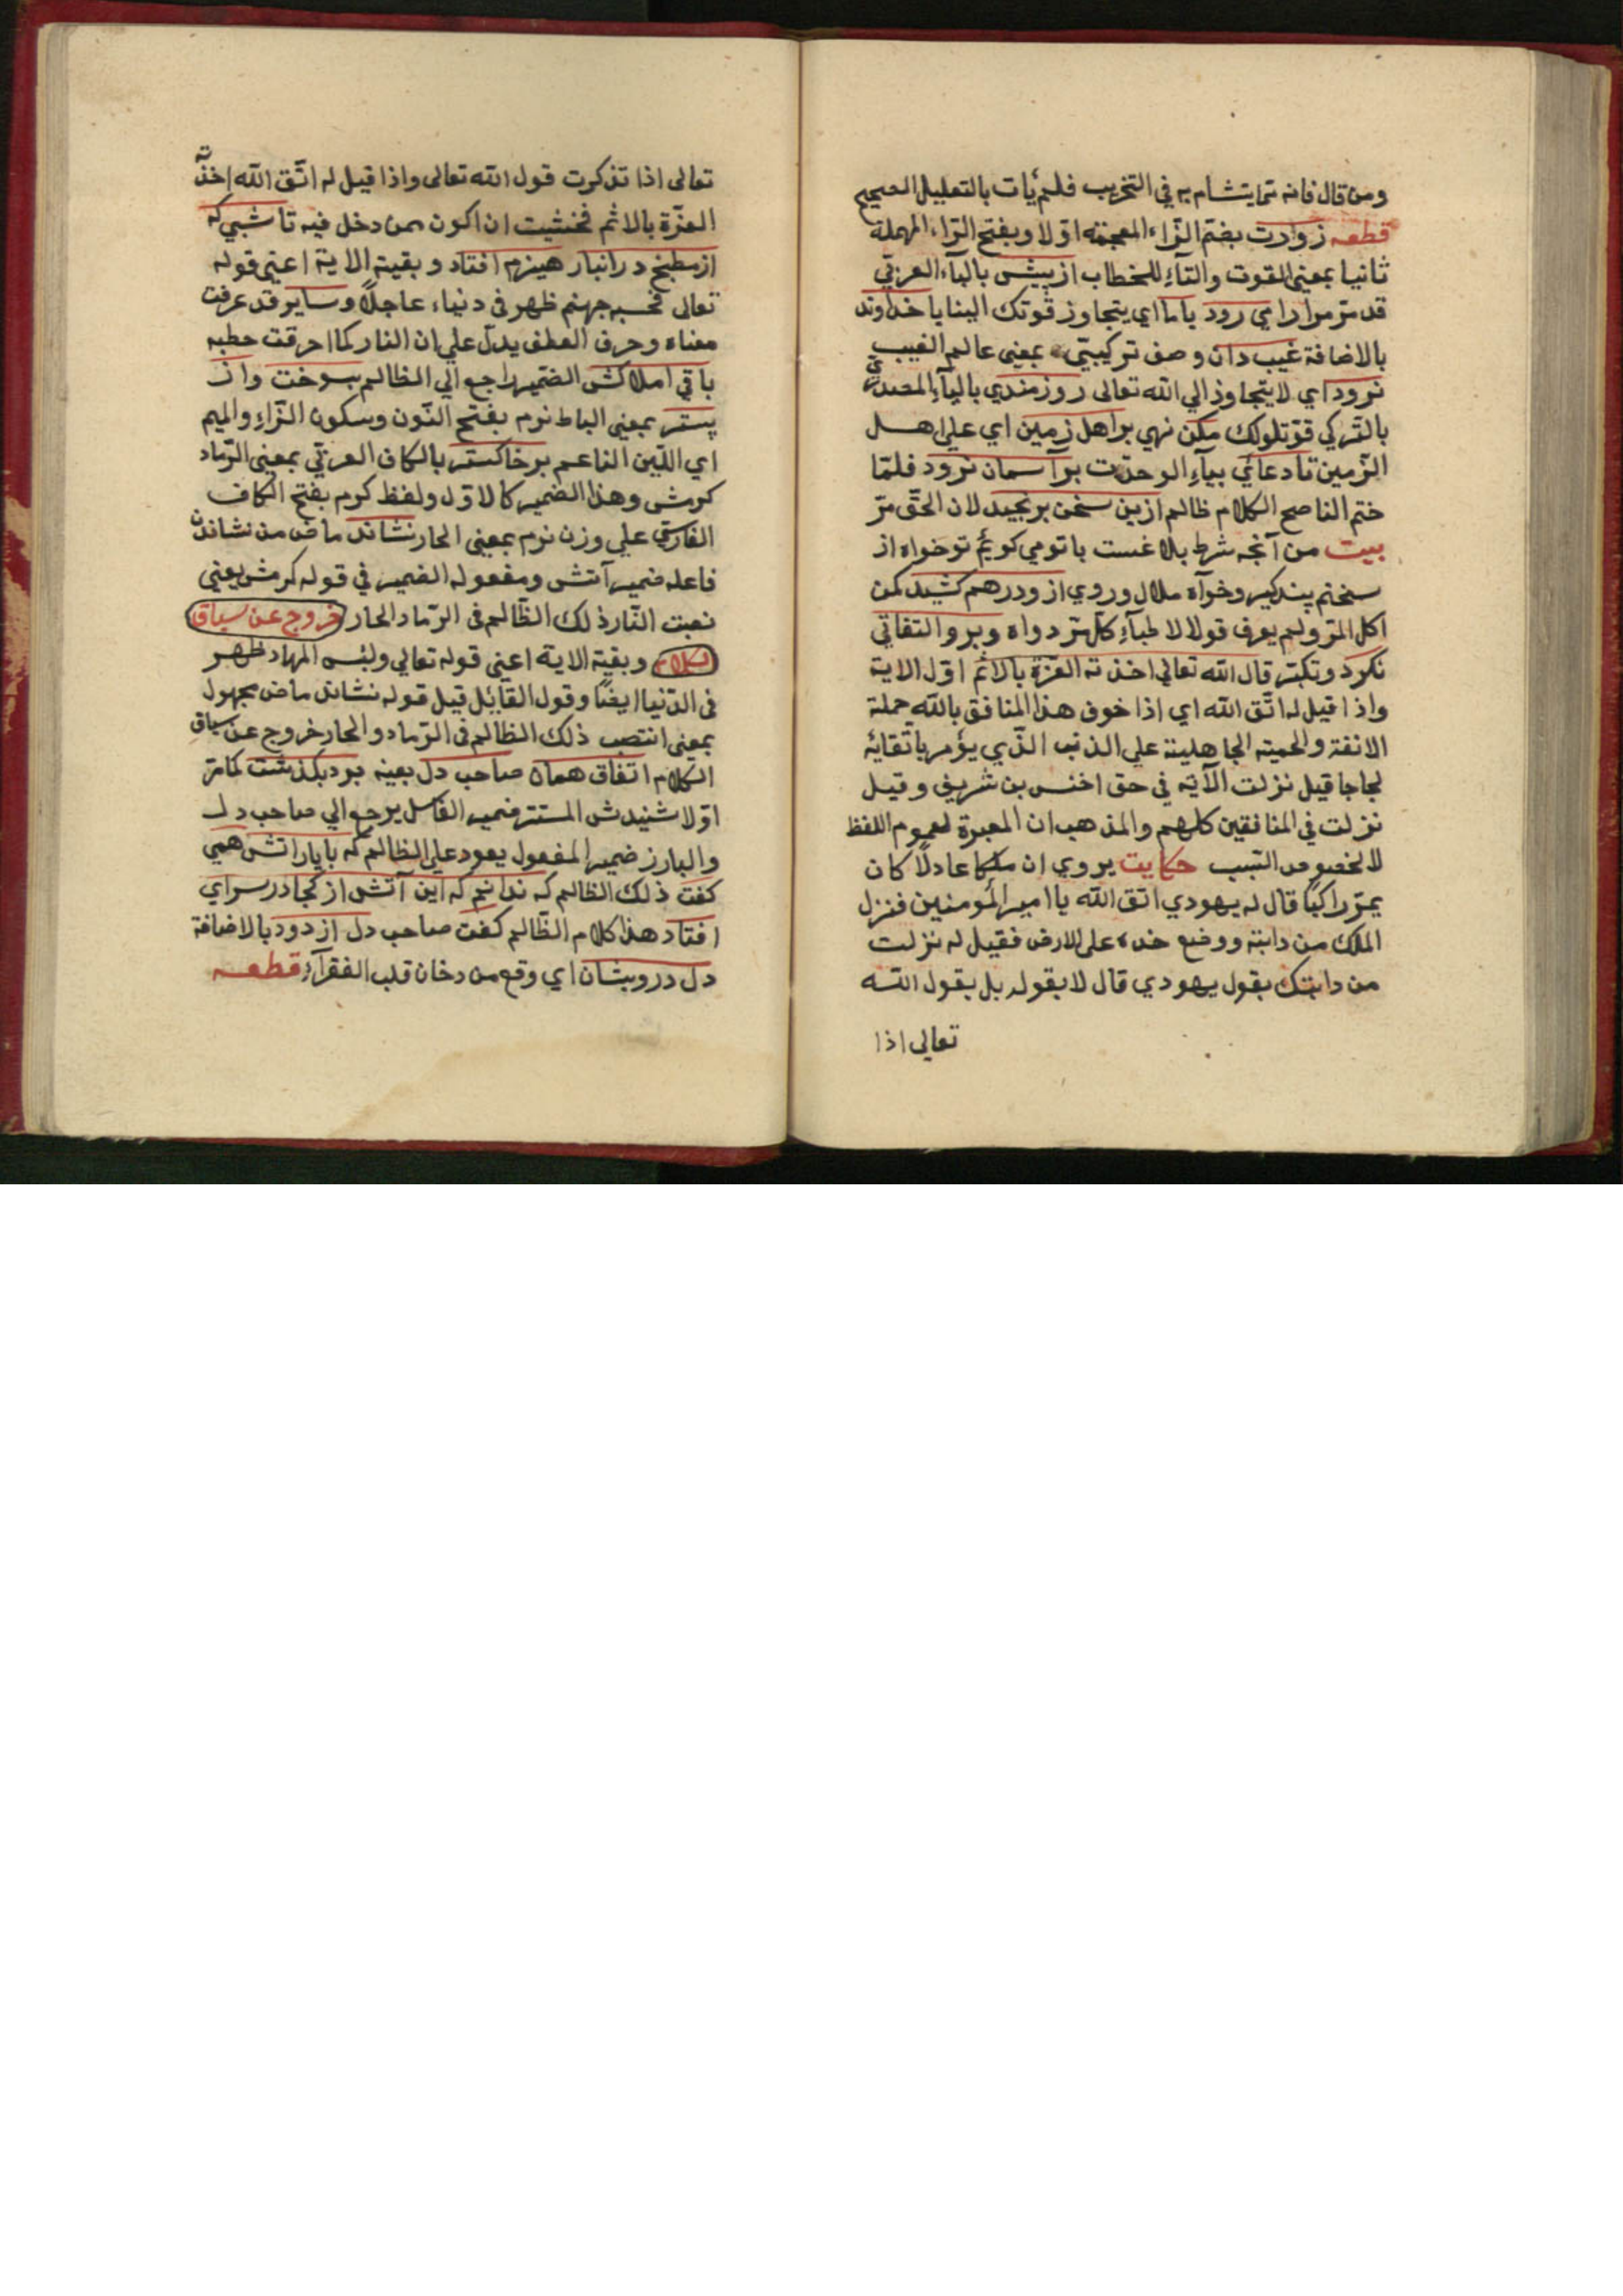 ومن قال فانه مما يتشام به في التخريب فلم يات بالتعليل الصحيح
قطعه زوارت بضم الزاء المعجمة اولا وبفتح الراء المهملة
ثانيا بمعنى القوت والتاء للخطاب از پيش بالياء العربي
قد مر مرارا مي رود باما اي يتجاوز قوتك الينا يا خداوند
بالاضافة غيب دان وصف تركيبي بمعنى عالم الغيب
نرود اي لا يتجاوز الي الله تعالى روزمندي بالياء المصدري
بالتركي قوتلولك مكن نهي بر اهل زمين اي على اهل
الزمين تا دعائي بياء الوحدت بر آسمان نرود فلما
ختم الناصح الكلام ظالم ازين سخن برنجيد لان الحق مر
بيت من آنچه شرط بلاغست باتومي كويم توخواه از
سخنم پندكير وخواه ملال وروي از ودرهم كشيد كمن
اكل المر ولم يعرف قولا لا طباء كل مر دواه وبرو التفاتي
نكرد وتكبر قال الله تعالى اخذته العزة بالاثم اول الاية
واذا قيل له اتق الله اي اذا خوف هذا المنافق بالله حملة
الانفة والحمية الجاهلية علي الذنب الذي يؤمر باتقائه
لجاجا قيل نزلت الآية في حق اخنس بن شريف وقيل
نزلت في المنافقين كلهم والمذهب ان المعبرة لعموم اللفظ
لا لخصوص السبب حكايت يروي ان ملكا عادلا كان
يمر راكبا قال له يهودي اتق الله يا امير المؤمنين فنزل
الملك من دابته ووضع خده على الارض فقيل له نزلت
من دابتك بقول يهودي قال لا بقوله بل بقول الله
تعالى اذا
تعالى اذا تذكرت قول الله تعالى واذا قيل له اتق الله اخذته
العزة بالاثم فخشيت ان اكون ممن دخل فيه تا شبي كه
از مطبخ در انبار هيزم افتاد وبقية الاية اعني قوله
تعالى فحسبه جهنم ظهر في دنياه عاجلا وساير قد عرفت
معناه وحرف العطف يدل علي ان النار كما احرقت حطبه
باقي املاكش الضمير راجع الي الظالم بسوخت واز
بستر بمعنى البساط نرم بفتح النون وسكون الراء والميم
اي اللين الناعم بر خاكستر بالكاف العربي بمعنى الرماد
كرمش وهذا الضمير كالاول ولفظ كرم بفتح الكاف
الفارسي علي وزن نرم بمعنى الحار نشاند ماض من نشاندن
فاعله ضمير آتش ومفعوله الضمير في قوله كرمش يعني
نصبت النار ذلك الظالم في الرماد الحار خروج عن سياق
الكلام وبقية الاية اعني قوله تعالي ولبئس المهاد ظهر
في الدنيا ايضا وقول القائل قيل قوله نشاند ماض مجهول
بمعنى انتصب ذلك الظالم في الرماد والحار خروج عن سياق
الكلام اتفاق همان صاحب دل بعينه برو بكذشت كمامر
اولا شنيدش المستتر ضمير الفاعل يرجع الي صاحب دل
والبارز ضمير المفعول يعود على الظالم كه بايارانش همي
كفت ذلك الظالم كه ندانم كه اين آتش از كجا در سراي
افتاد هذا كلام الظالم كفت صاحب دل از دود بالاضافة
دل درويشان اي وقع من دخان قلب الفقرآء قطعه